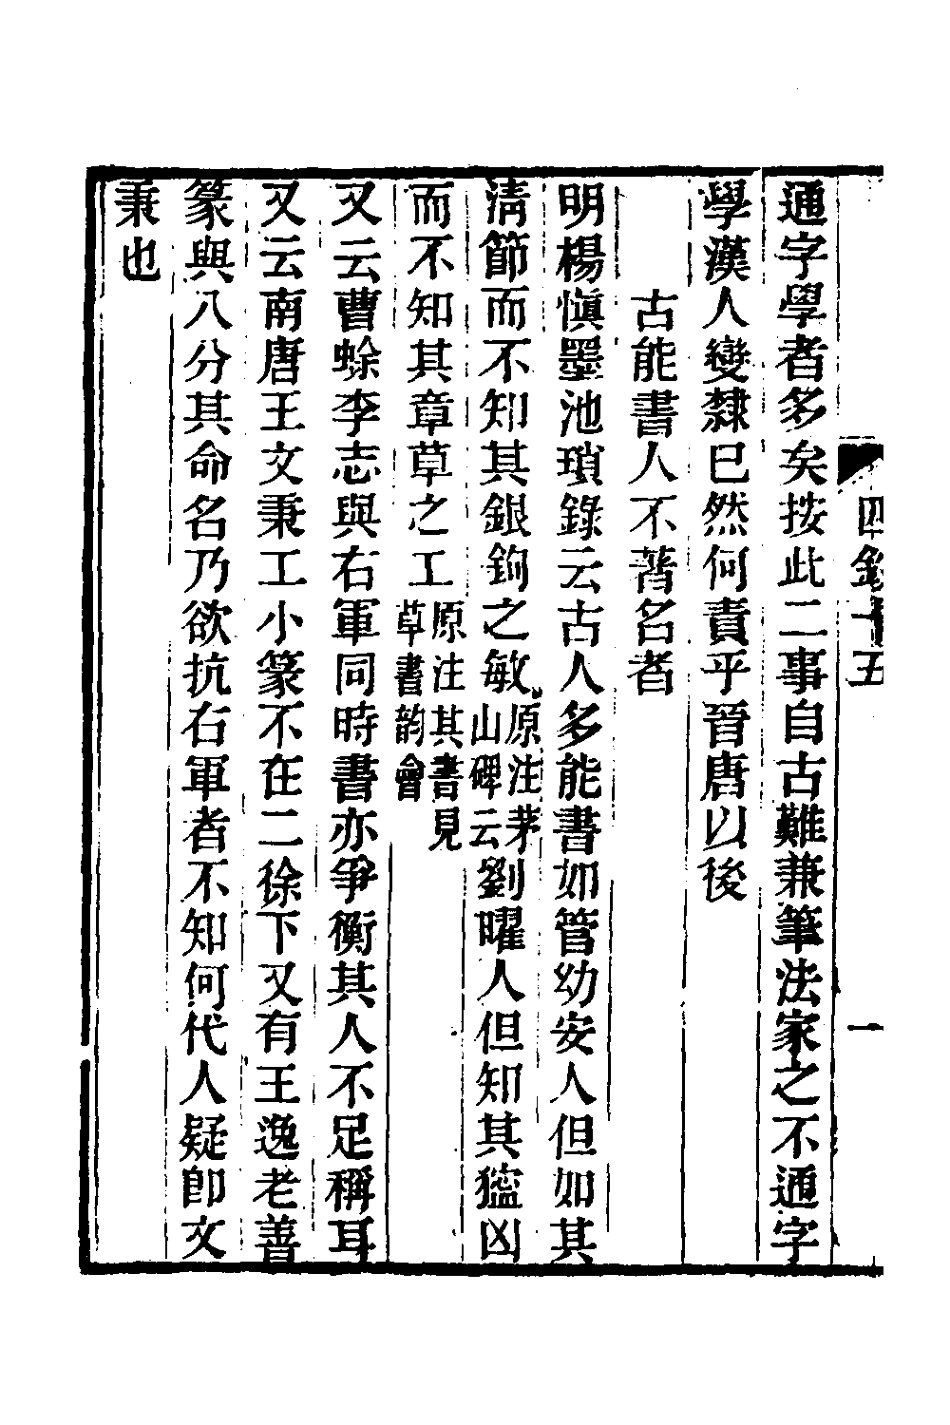 四鈔十五
一
通字學者多矣按此二事自古難兼筆法家之不通字
學漢人變隸已然何責乎晉唐以後
古能書人不著名者
明楊愼墨池瑣錄云古人多能書如管幼安人但如其
淸節而不知其銀鉤之敏原注茅山碑云劉曜人但知其獊凶
而不知其章草之工原注其書見草書韵會
又云曹蜍李志與右軍同時書亦爭衡其人不足稱耳
又云南唐王文秉工小篆不在二徐下又有王逸老善
篆與八分其命名乃欲抗右軍者不知何代人疑卽文
秉也